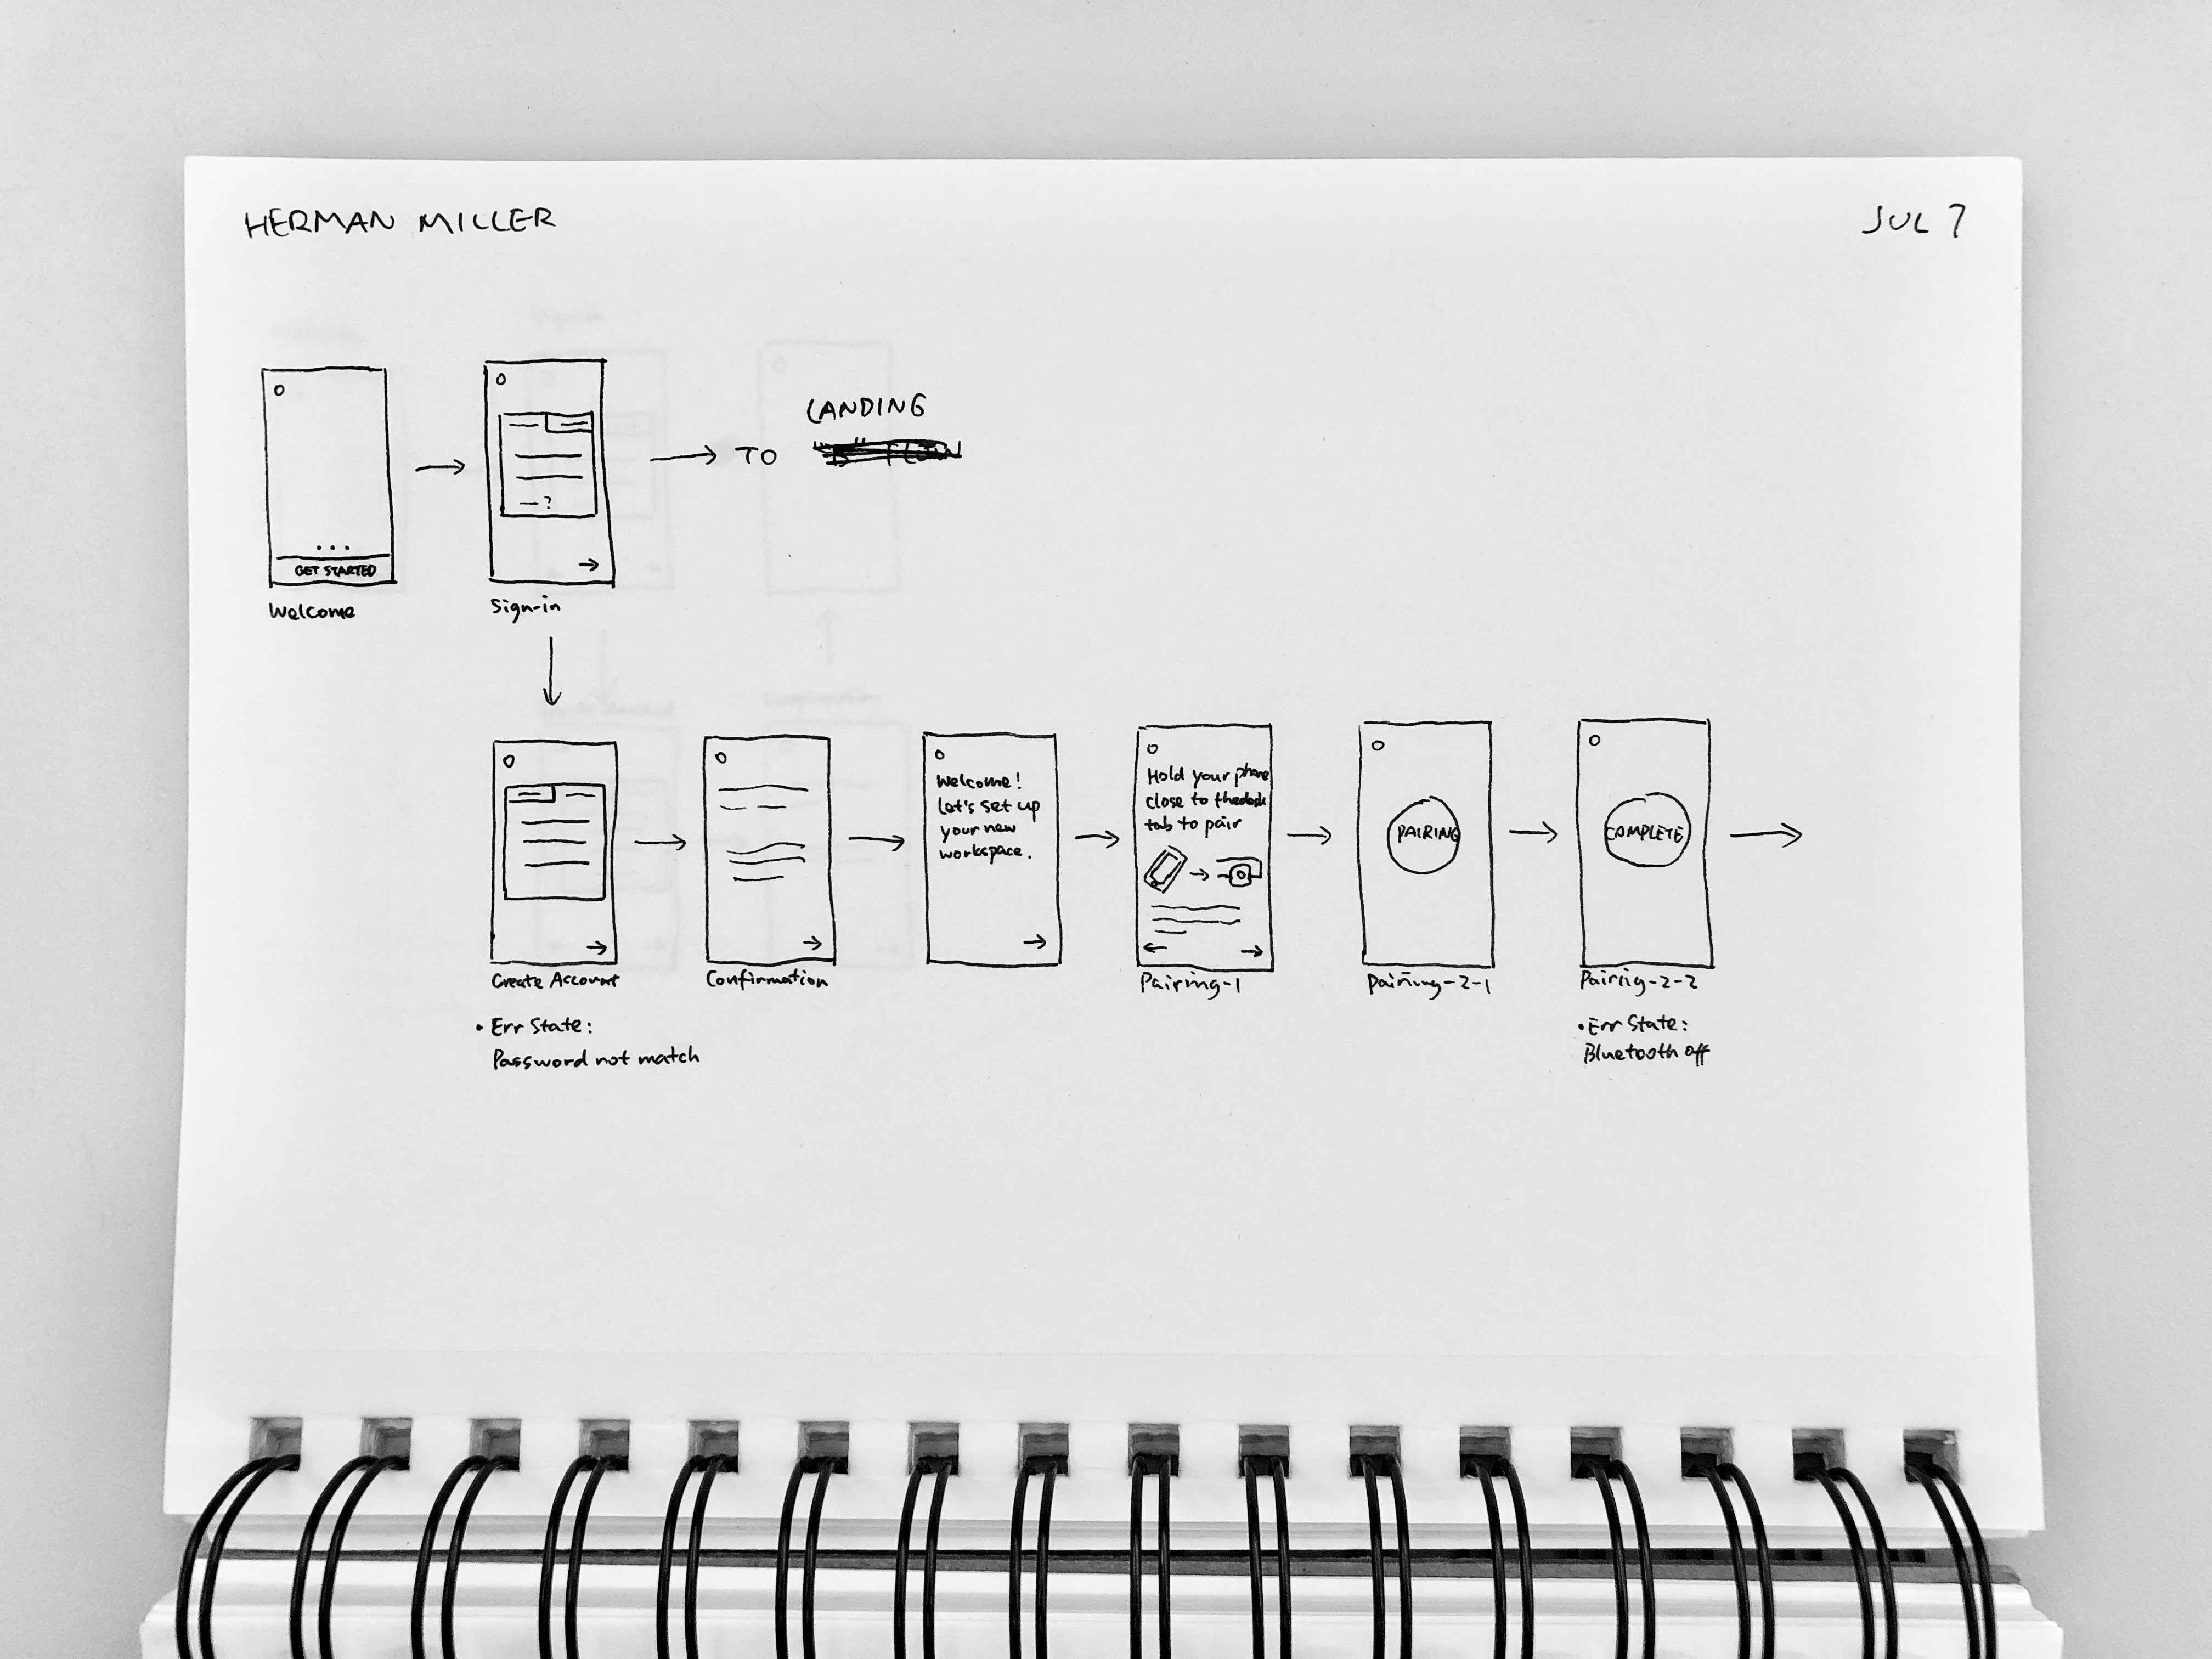 HERMAN MILLER
JUL 7
GET STARTED
Welcome
?
Sign-in
TO
LANDING
Create Account
• Err State:
Password not match
Confirmation
Welcome!
Let's set up
your new
workspace.
Hold your phone
close to the desk
tab to pair
Pairing-1
PAIRING
Pairing-2-1
COMPLETE
Pairig-2-2
• Err State:
Bluetooth off